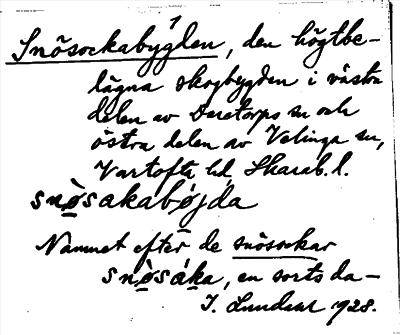 Snösockabygden, den högtbe-
lägna skogbygden i västra
delen av Daretorps sn och
östra delen av Velinga sn,
Vartofta hd, Skarab. l.
snø̀sakabøjda
Namnet efter de snösockar
snø̀sáka, en sorts da-
J. Lundahl 1928.